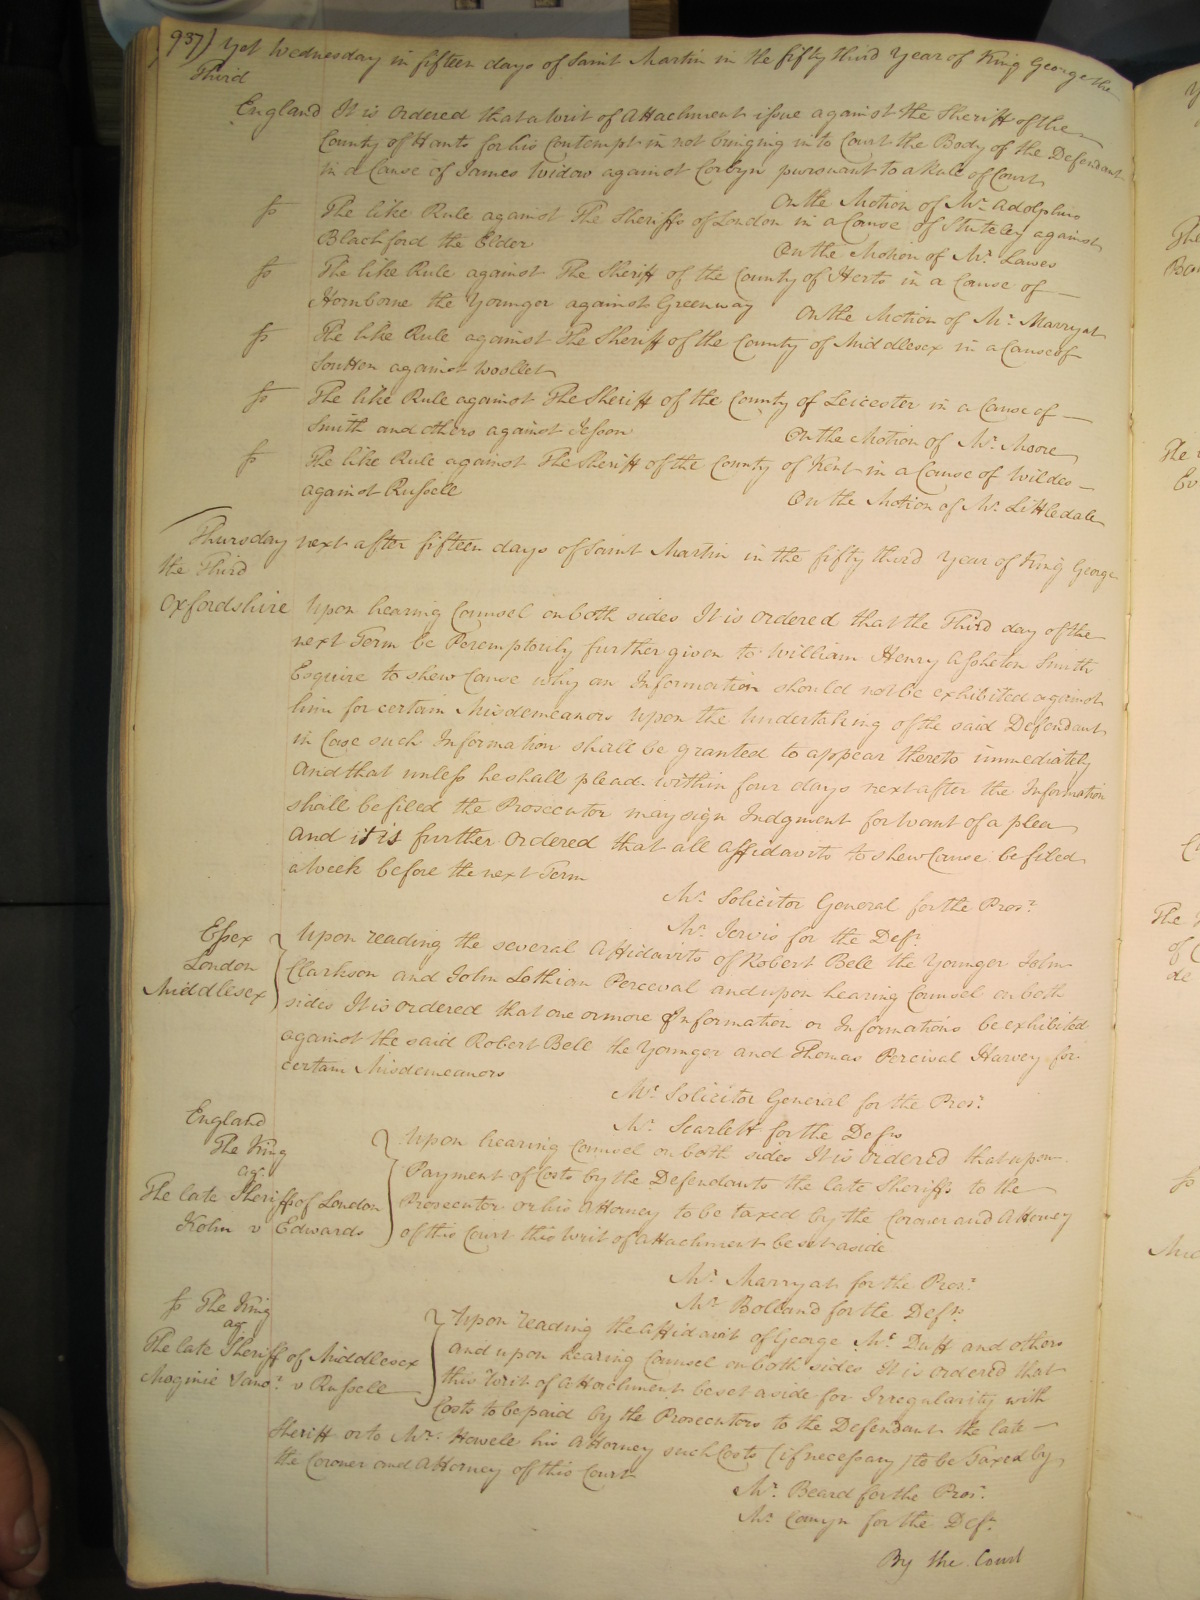 937) Yet Wednesday in fifteen days of Saint Martin in the fifty third Year of King George the
Third
England It is Ordered that a Writ of Attachment issue against the Sheriff of the
County of Hants for his Contempt in not bringing into Court the Body of the Defendant
in a Cause of James Widow against Corbyn pursuant to a Rule of Court
On the Motion of Mr. Adolphus
ss The like Rule against The Sheriffs of London in a Cause of Stuteley against
Blachford the Elder
On the Motion of Mr. Lawes
ss The like Rule against The Sheriff of the County of Herts in a Cause of
Hornborne the Younger against Greenway On the Motion of Mr. Marryat
ss The like Rule against The Sheriff of the County of Middlesex in a Cause of
Soutton against Woollet
ss The like Rule against The Sheriff of the County of Leicester in a Cause of
Smith and others against Jesson On the Motion of Mr. Moore
ss The like Rule against The Sheriff of the County of Kent in a Cause of Wildes
against Russell On the Motion of Mr. Littledale
Thursday next after fifteen days of Saint Martin in the fifty third Year of King George
the Third
Oxfordshire Upon hearing Counsel on both sides It is Ordered that the Third day of the
next Term be Peremptorily further given to William Henry Assheton Smith
Esquire to shew Cause why an Information should not be exhibited against
him for certain Misdemeanors upon the Undertaking of the said Defendant
in Case such Information shall be granted to appear thereto immediately
And that unless he shall plead within four days next after the Information
shall be filed the Prosecutor may sign Judgment for want of a plea
And it is further Ordered that all Affidavits to shew Cause be filed
a Week before the next Term
Mr. Solicitor General for the Pros.r
Mr. Jervis for the Def.t
Essex
London
Middlesex
Upon reading the several Affidavits of Robert Bell the Younger John
Clarkson and John Lothian Perceval and upon hearing Counsel on both
sides It is Ordered that one or more Information or Informations be exhibited
against the said Robert Bell the Younger and Thomas Percival Harvey for
certain Misdemeanors
Mr. Solicitor General for the Pros.r
Mr. Scarlett for the Defts
England
The King
ag.t
The late Sheriffs of London
Kohn v Edwards
Upon hearing Counsel on both sides It is Ordered that upon
Payment of Costs by the Defendants the late Sheriffs to the
Prosecutor or his Attorney to be taxed by the Coroner and Attorney
of this Court this Writ of Attachment be set aside
Mr. Marryat for the Pros.r
Mr. Bolland for the Defts.
ss The King
ag.t
The late Sheriff of Middlesex
v Russell
Upon reading the Affidavit of George Mc. Duff and others
and upon hearing Counsel on both sides It is ordered that
this Writ of Attachment be set aside for Irregularity with
Costs to be paid by the Prosecutors to the Defendant the late
Sheriff or to Mr. Howell his Attorney such Costs (if necessary) to be Taxed by
the Coroner and Attorney of this Court
Mr. Beard for the Pros.r
Mr. Comyn for the Def.t
By the Court